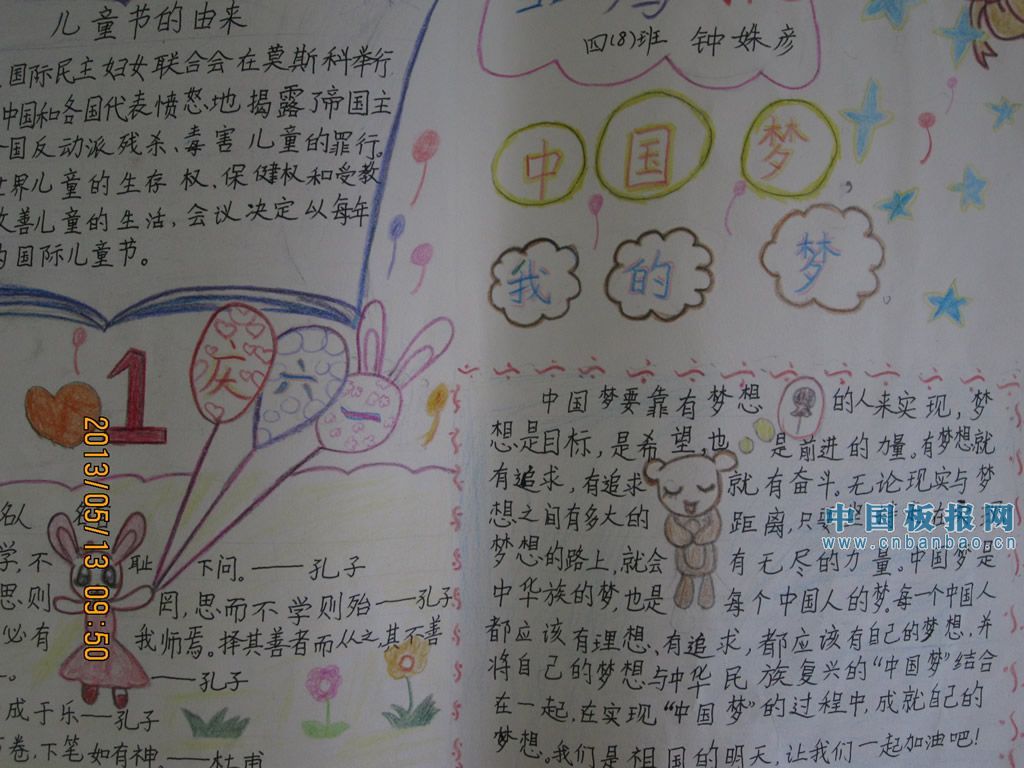 儿童节的由来
国际民主妇女联合会在莫斯科举行
中国和各国代表愤怒地揭露了帝国主
国反动派残杀、毒害儿童的罪行。
世界儿童的生存权、保健权和受教
改善儿童的生活,会议决定以每年
的国际儿童节。
四(8)班 钟姝彦
中国梦
我的梦
1
庆六一
中国梦要靠有梦想的人来实现,梦
想是目标,是希望,也是前进的力量。有梦想就
有追求,有追求就有奋斗。无论现实与梦
想之间有多大的距离,只要
梦想的路上,就会有无尽的力量。中国梦是
中华族的梦,也是每个中国人的梦。每一个中国人
都应该有理想、有追求,都应该有自己的梦想,并
将自己的梦想与中华民族复兴的“中国梦”结合
在一起,在实现“中国梦”的过程中,成就自己的
梦想。我们是祖国的明天,让我们一起加油吧!
名人
学,不耻下问。——孔子
思则罔,思而不学则殆——孔子
必有我师焉。择其善者而从之,其不善
——孔子
成于乐——孔子
卷,下笔如有神。——杜甫
2013/05/13 09:50
中国板报网
www.cnbanbao.cn